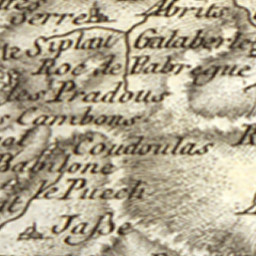 Serre
Abrits
Siplau
Galaberte
Roc de Babregue
les Pradous
Cambons
Coudoulas
Babilone
le Puech
Jaße